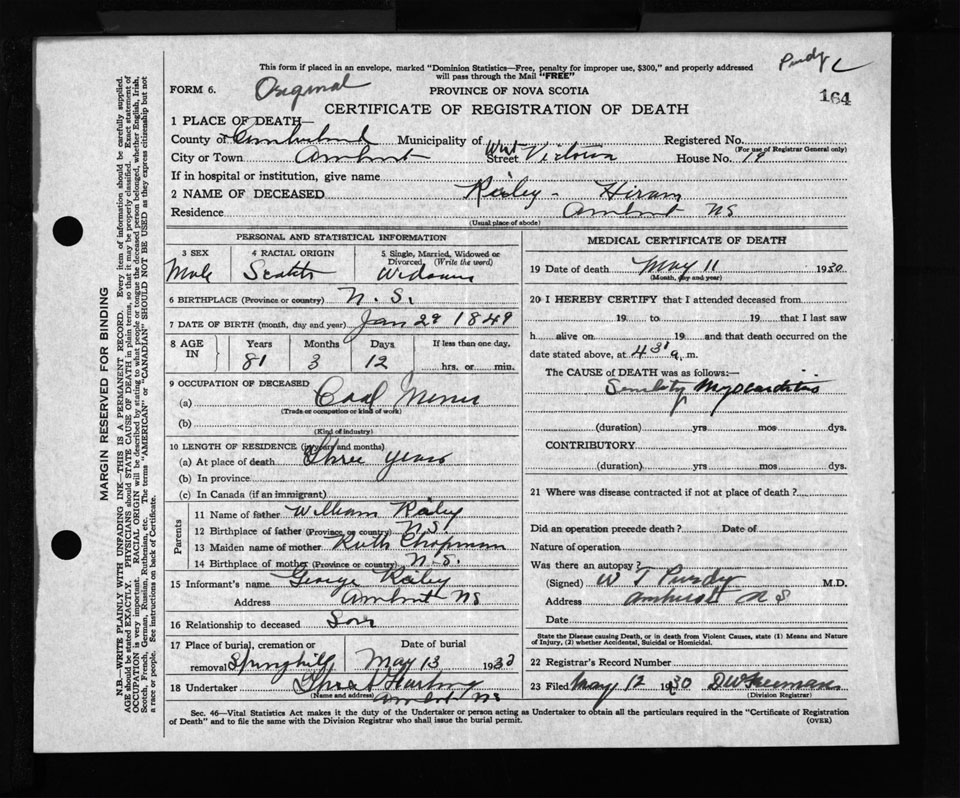 Purdy L
This form if placed in an envelope, marked "Dominion Statistics—Free, penalty for improper use, $300," and properly addressed
will pass through the Mail "FREE"
FORM 6. Original PROVINCE OF NOVA SCOTIA
164
CERTIFICATE OF REGISTRATION OF DEATH
1 PLACE OF DEATH—
County of Cumberland Municipality of Registered No.
(For use of Registrar General only)
City or Town Amherst Street West Victoria House No. 19
If in hospital or institution, give name
2 NAME OF DECEASED Railey - Hiram
Residence Amherst NS
(Usual place of abode)
PERSONAL AND STATISTICAL INFORMATION
3 SEX 4 RACIAL ORIGIN 5 Single, Married, Widowed or
Divorced (Write the word)
Male Scotch Widower
6 BIRTHPLACE (Province or country) N.S.
7 DATE OF BIRTH (month, day and year) Jan 29 1849
8 AGE IN Years Months Days If less than one day,
81 3 12 hrs. or min.
9 OCCUPATION OF DECEASED
(a) Coal Miner
(Trade or occupation or kind of work)
(b)
(Kind of industry)
10 LENGTH OF RESIDENCE (in years and months)
(a) At place of death Three years
(b) In province
(c) In Canada (if an immigrant)
Parents
11 Name of father William Railey
12 Birthplace of father (Province or country) N.S.
13 Maiden name of mother Ruth Chapman
14 Birthplace of mother (Province or country) N.S.
15 Informant's name George Railey
Address Amherst NS
16 Relationship to deceased Son
17 Place of burial, cremation or Date of burial
removal Springhill May 13 1930
18 Undertaker
(Name and address) Amherst NS
MEDICAL CERTIFICATE OF DEATH
19 Date of death May 11 1930
(Month, day and year)
20 I HEREBY CERTIFY that I attended deceased from
19 to 19 that I last saw
h alive on 19 and that death occurred on the
date stated above, at 4 31 a. m.
The CAUSE of DEATH was as follows:—
Senility Myocarditis
(duration) yrs mos dys.
CONTRIBUTORY
(duration) yrs mos dys.
21 Where was disease contracted if not at place of death?
Did an operation precede death? Date of
Nature of operation
Was there an autopsy?
(Signed) W T Purdy M.D.
Address Amherst N S
Date
State the Disease causing Death, or in death from Violent Causes, state (1) Means and Nature
of Injury, (2) whether Accidental, Suicidal or Homicidal.
22 Registrar's Record Number
23 Filed May 12 1930 D W Freeman
(Division Registrar)
Sec. 46—Vital Statistics Act makes it the duty of the Undertaker or person acting as Undertaker to obtain all the particulars required in the "Certificate of Registration
of Death" and to file the same with the Division Registrar who shall issue the burial permit. (OVER)
MARGIN RESERVED FOR BINDING
N.B.—WRITE PLAINLY WITH UNFADING INK—THIS IS A PERMANENT RECORD. Every item of information should be carefully supplied.
AGE should be stated EXACTLY. PHYSICIANS should STATE CAUSE OF DEATH in plain terms, so that it may be properly classified. Exact statement of
OCCUPATION is very important. RACIAL ORIGIN will be described by stating to what people or tongue the deceased person belonged, whether English, Irish,
Scotch, French, German, Russian, Ruthenian, etc. The terms "AMERICAN" or "CANADIAN" SHOULD NOT BE USED as they express citizenship but not
a race or people. See instructions on back of Certificate.